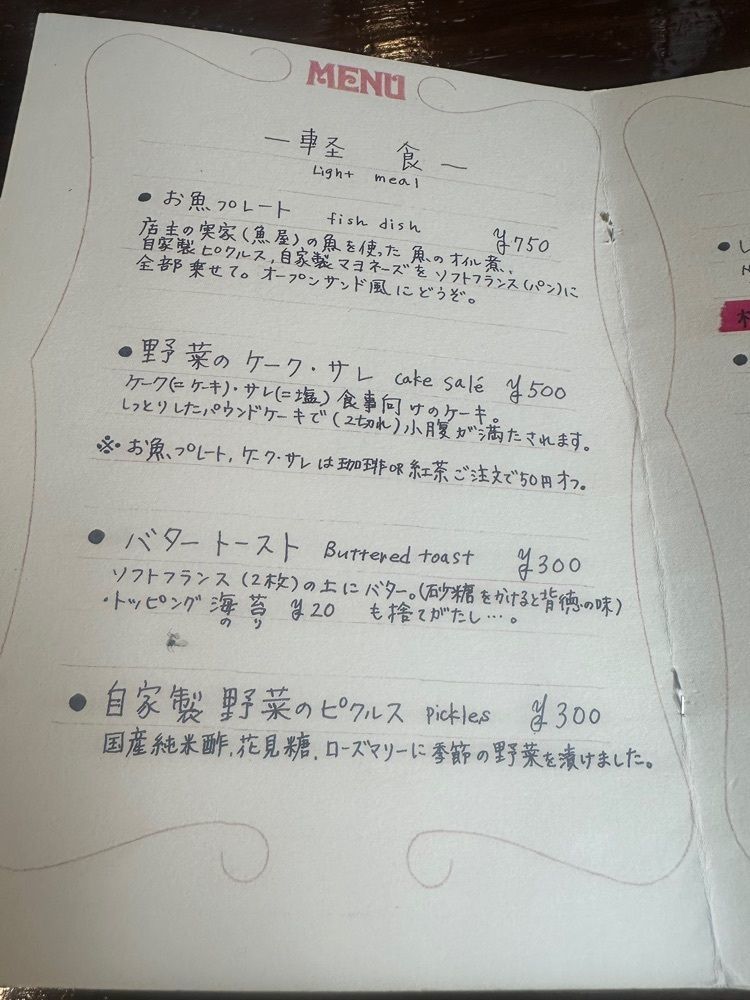 MENU
ー軽 食ー
Light meal
● お魚プレート fish dish ¥750
店主の実家(魚屋)の魚を使った魚のオイル煮、
自家製ピクルス,自家製マヨネーズをソフトフランス(パン)に
全部乗せて。オープンサンド風にどうぞ。
● 野菜のケーク・サレ cake salé ¥500
ケーク(=ケーキ)・サレ(=塩)食事向けのケーキ。
しっとりしたパウンドケーキで(2切れ)小腹が満たされます。
※お魚プレート,ケーク・サレは珈琲OR紅茶ご注文で50円オフ。
● バタートースト Buttered toast ¥300
ソフトフランス(2枚)の上にバター。(砂糖をかけると背徳の味)
・トッピング海苔 ¥20 も捨てがたし…。
のり
● 自家製野菜のピクルス pickles ¥300
国産純米酢,花見糖,ローズマリーに季節の野菜を漬けました。